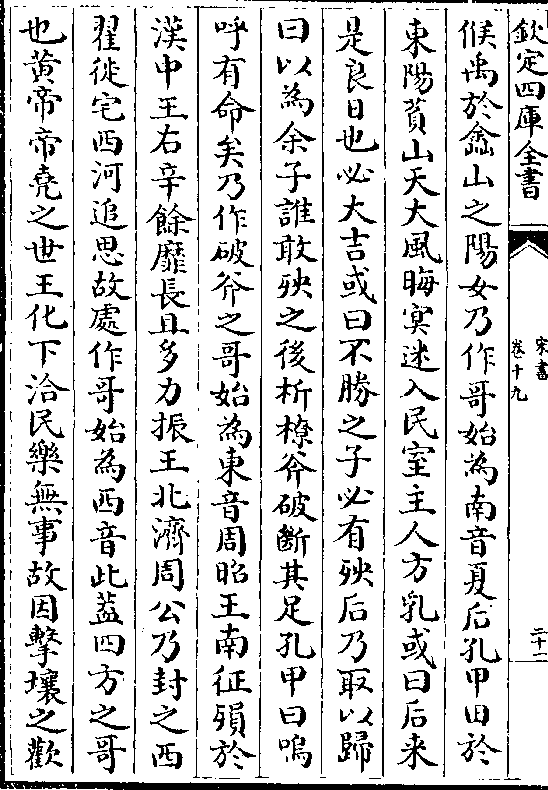 欽定四庫全書
宋書
卷十九
二十一
候禹於嵞山之陽女乃作哥始為南音夏后孔甲田於
東陽萯山天大風晦冥迷入民室主人方乳或曰后来
是良日也必大吉或曰不勝之子必有殃后乃取以歸
曰以為余子誰敢殃之後析橑斧破斷其足孔甲曰嗚
呼有命矣乃作破斧之哥始為東音周昭王南征殞於
漢中王右辛餘靡長且多力振王北濟周公乃封之西
翟徙宅西河追思故處作哥始為西音此蓋四方之哥
也黄帝帝堯之世王化下洽民樂無事故因擊壤之歡